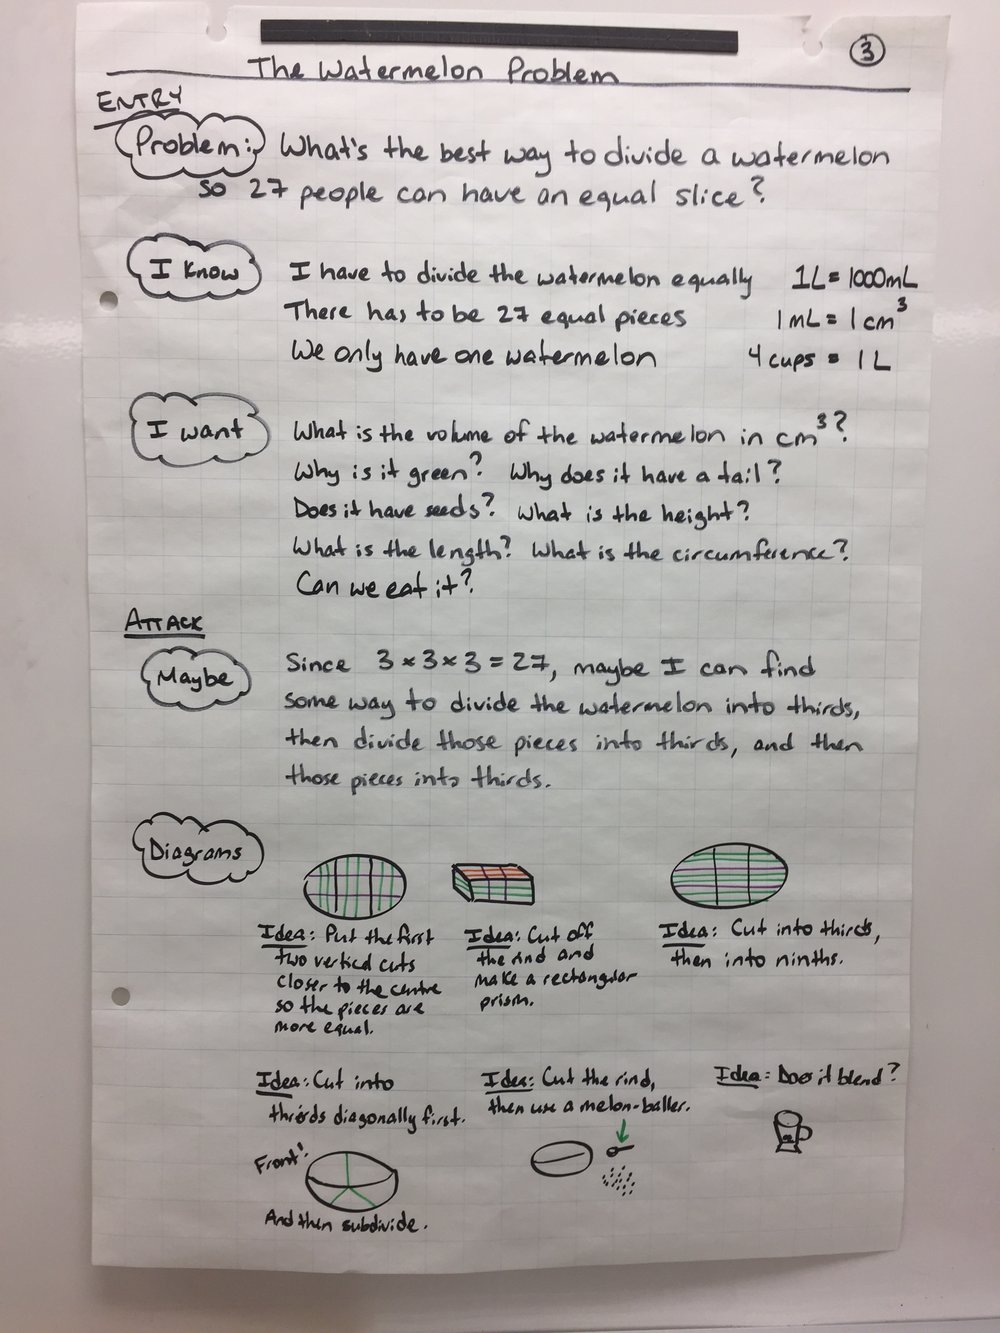 3
The Watermelon Problem
ENTRY
Problem: What's the best way to divide a watermelon
so 27 people can have an equal slice?
I know
I have to divide the watermelon equally
1L = 1000mL
There has to be 27 equal pieces
1mL = 1cm³
We only have one watermelon
4 cups = 1L
I want
What is the volume of the watermelon in cm³?
Why is it green? Why does it have a tail?
Does it have seeds? What is the height?
What is the length? What is the circumference?
Can we eat it?
ATTACK
Maybe
Since 3 × 3 × 3 = 27, maybe I can find
some way to divide the watermelon into thirds,
then divide those pieces into thirds, and then
those pieces into thirds.
Diagrams
Idea: Put the first
two vertical cuts
closer to the centre
so the pieces are
more equal.
Idea: Cut off
the rind and
make a rectangular
prism.
Idea: Cut into thirds,
then into ninths.
Idea: Cut into
thirds diagonally first.
Front:
And then subdivide.
Idea: Cut the rind,
then use a melon-baller.
Idea: Does it blend?